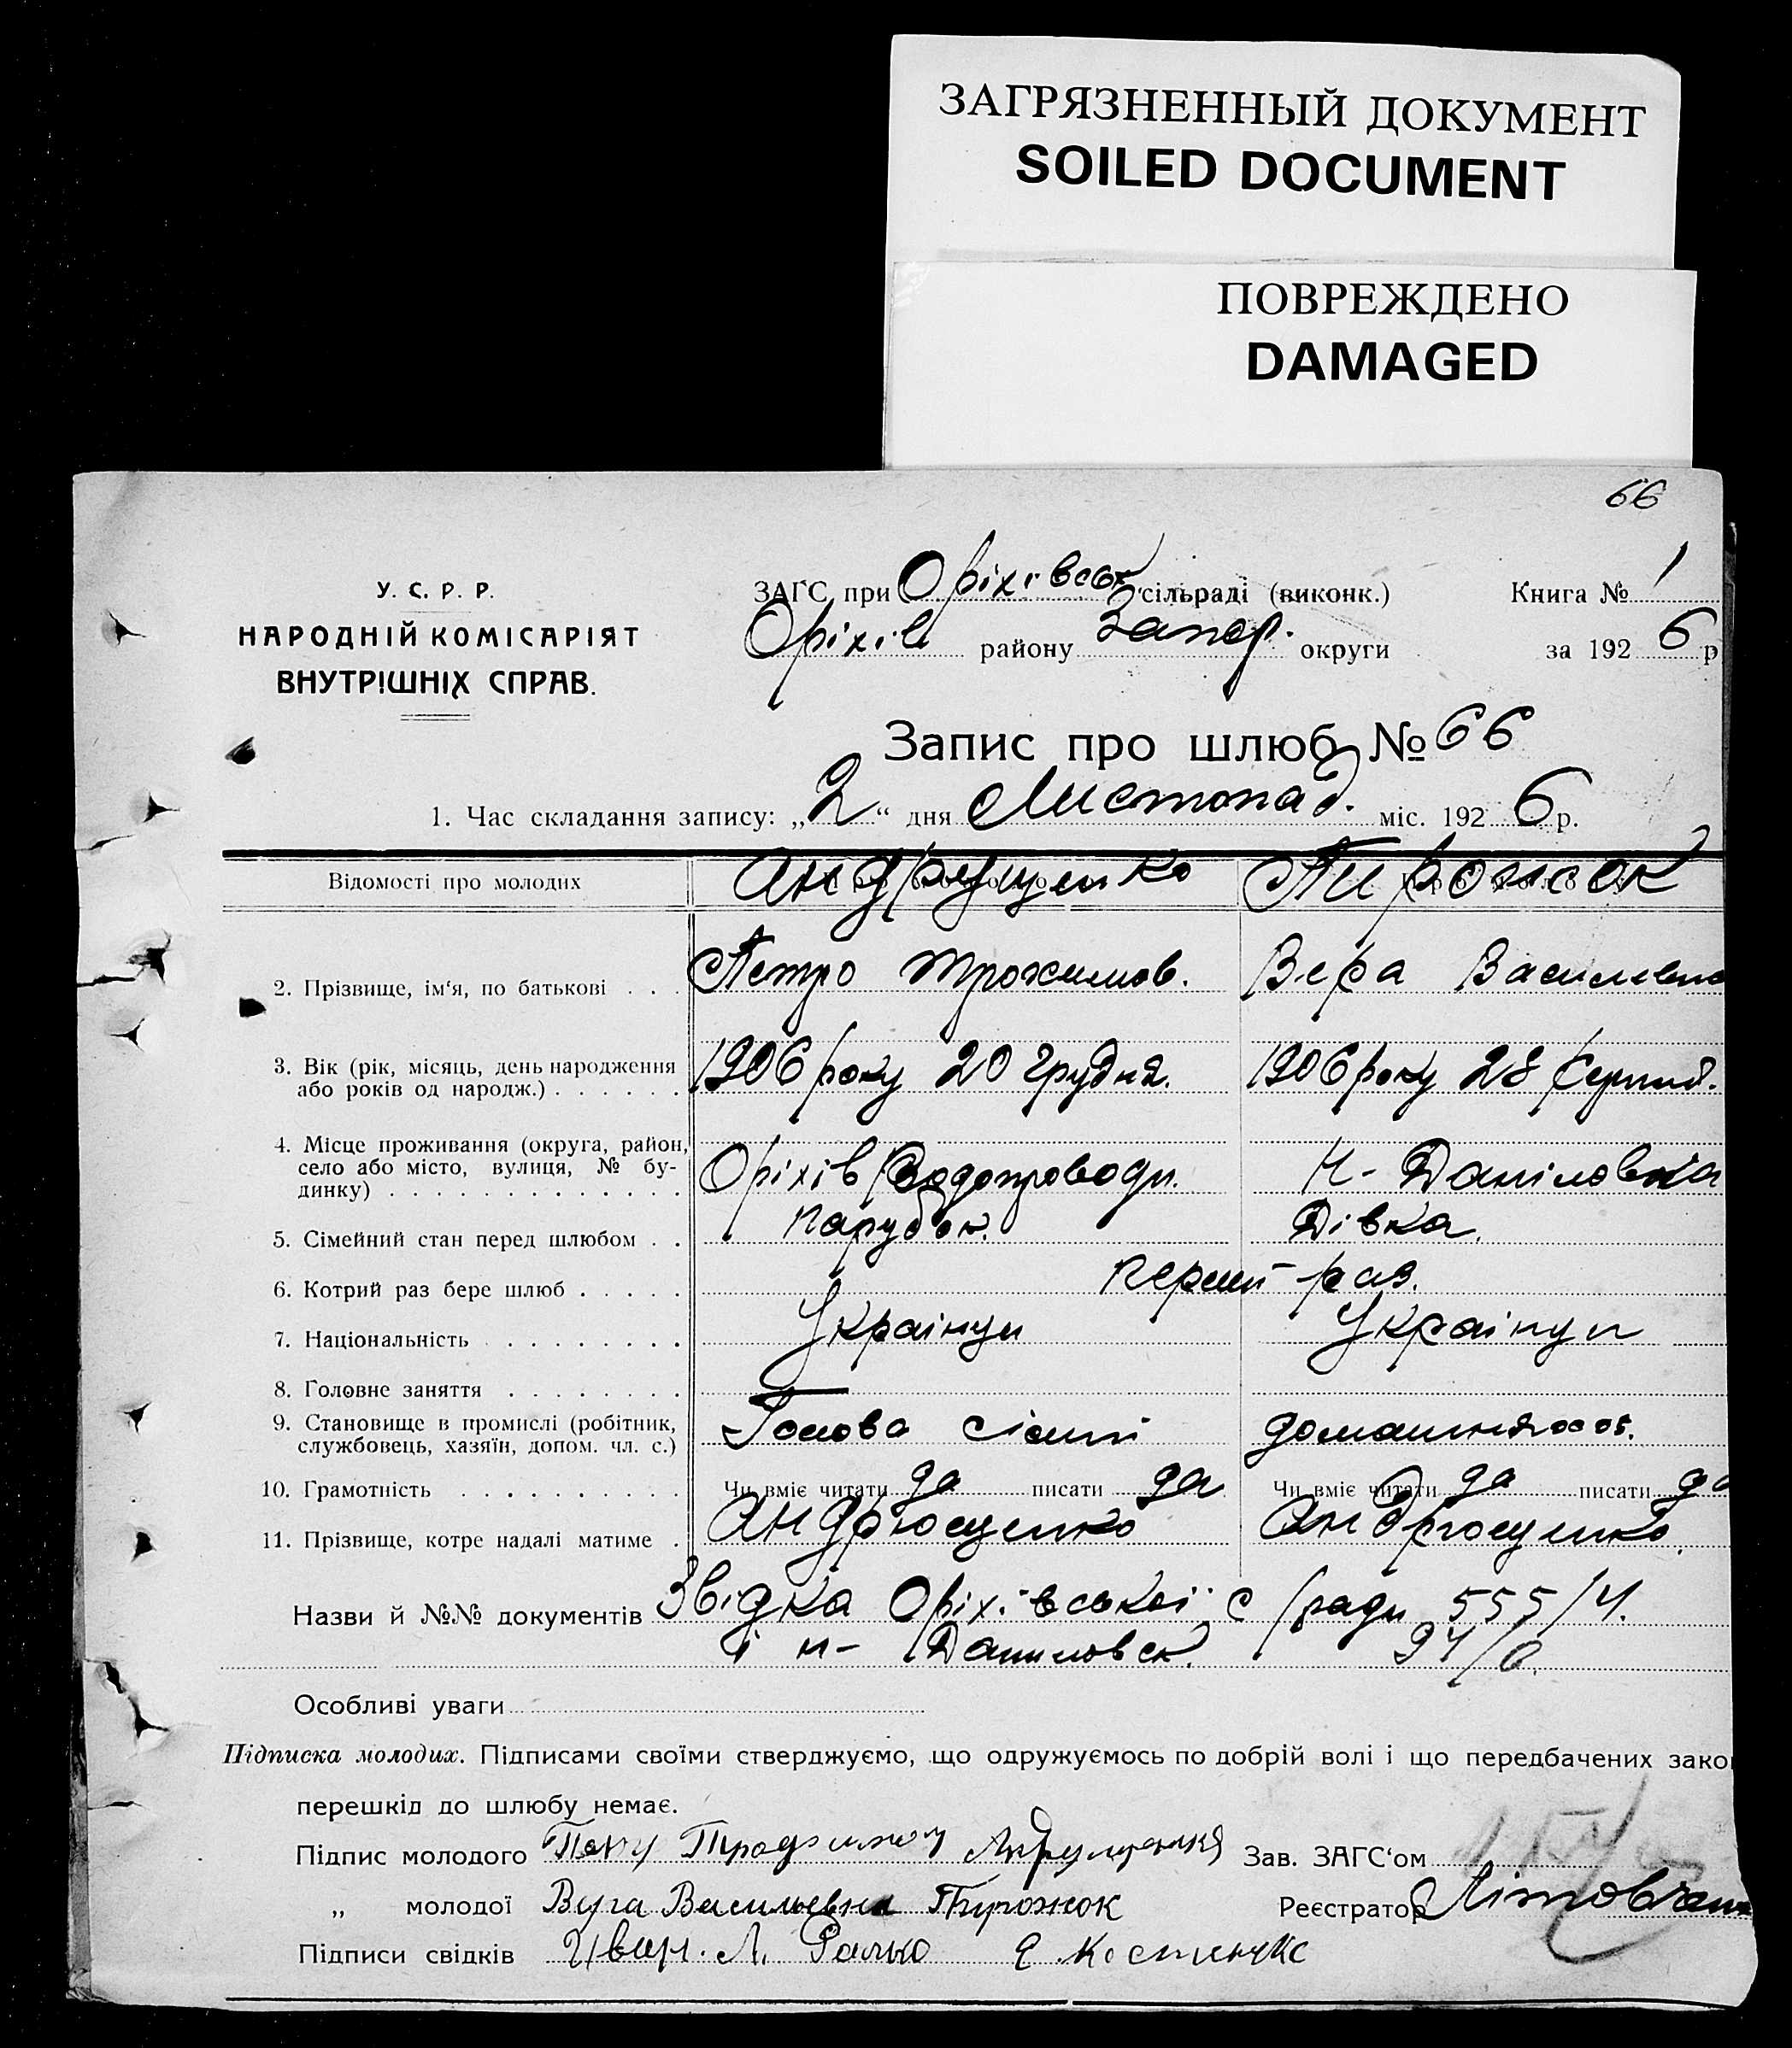 ЗАГРЯЗНЕННЫЙ ДОКУМЕНТ
SOILED DOCUMENT
ПОВРЕЖДЕНО
DAMAGED
66
У. С. Р. Р.
НАРОДНІЙ КОМІСАРІЯТ
ВНУТРІШНІХ СПРАВ.
ЗАГС при Оріхівськ сільраді (виконк.)
Книга № 1
Оріхів району Запор. округи
за 1926 р
Запис про шлюб № 66
1. Час складання запису: „2“ дня Листопад. міс. 1926 р.
Відомості про молодих
Андрущенко Пирожок
2. Прізвище, ім'я, по батькові . . . Петро Трохимов. Вера Василевна
3. Вік (рік, місяць, день народження
або років од народж.) . . . . . . 1906 року 20 Грудня. 1906 року 28 Серпня.
4. Місце проживання (округа, район,
село або місто, вулиця, № бу-
динку) . . . . . . . . . . . . . Оріхів Водопроводн. Н- Даніловка
5. Сімейний стан перед шлюбом . . парубок. Дівка.
6. Котрий раз бере шлюб . . . . . перший раз.
7. Національність . . . . . . . . Українци Українци
8. Головне заняття . . . . . . . .
9. Становище в промислі (робітник,
службовець, хазяїн, допом. чл. с.) Голова сімї домашня
10. Грамотність . . . . . . . . . . Чи вміє читати да писати да Чи вміє читати да писати да
11. Прізвище, котре надалі матиме . Андрющенко Андрющенко.
Назви й №№ документів Звідка Оріхівської с/ради 555/4.
і н- Даниловск.
Особливі уваги
Підписка молодих. Підписами своїми стверджуємо, що одружуємось по добрій волі і що передбачених зако
перешкід до шлюбу немає.
Підпис молодого
Зав. ЗАГС'ом
„ молодої Вера Васильевна Пирожок
Реєстратор
Підписи свідків Иван. Л. Е. Костенчкс